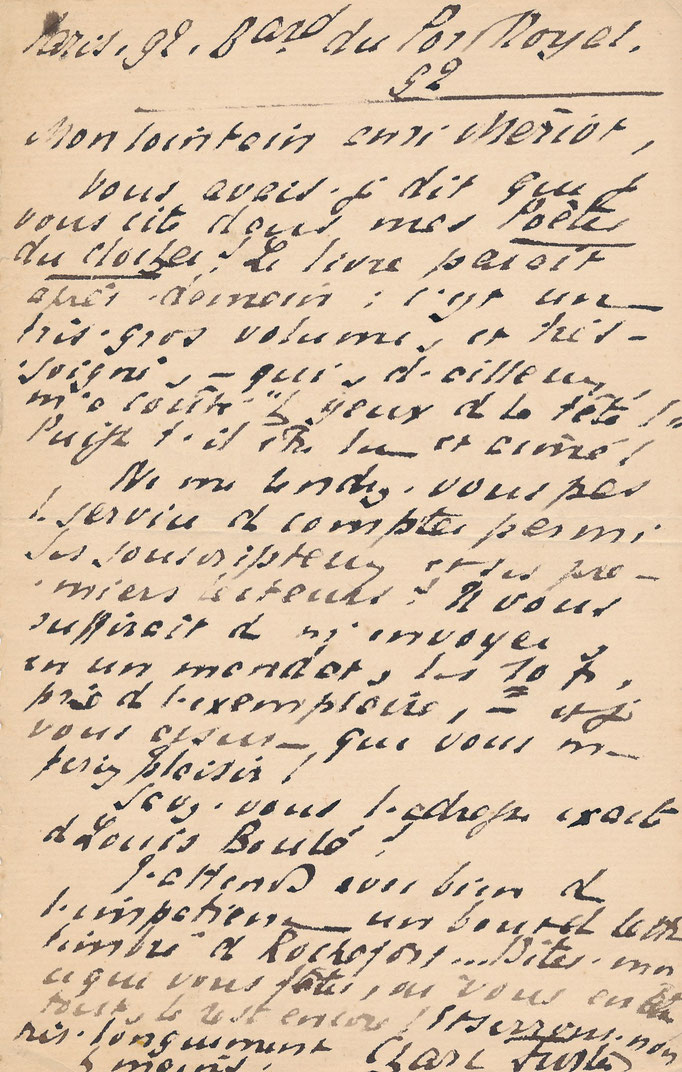 Paris. 92. Bard du Port Royal.
92
Mon lointain ami Mériot,
Vous avais-j dit que j
vous cite dans mes Poètes
du clocher? Le livre paraît
après-demain : c'est un
très-gros volume, et très-
soigné, – qui, d'ailleurs,
m'a coûté "les yeux de la tête!"
Puisse-t-il être lu et aimé!
Ne me rendez-vous pas
l service d compter parmi
ses souscripteurs et ses pre-
miers lecteurs? Il vous
suffirait d m'envoyer,
en un mandat, les 10 f,
prix d l'exemplaire, – et je
vous assure que vous m
feriez plaisir!
Savez-vous l'adresse exacte
d Louis Boulé?
J'attends avec bien d
l'impatience un bout d lettre
timbré d Rochefort... Dites-moi
c que vous faites, où vous en êtes
tout, le rest encore! Et serrons-nous
très-longuement
les mains. Charl Fuster